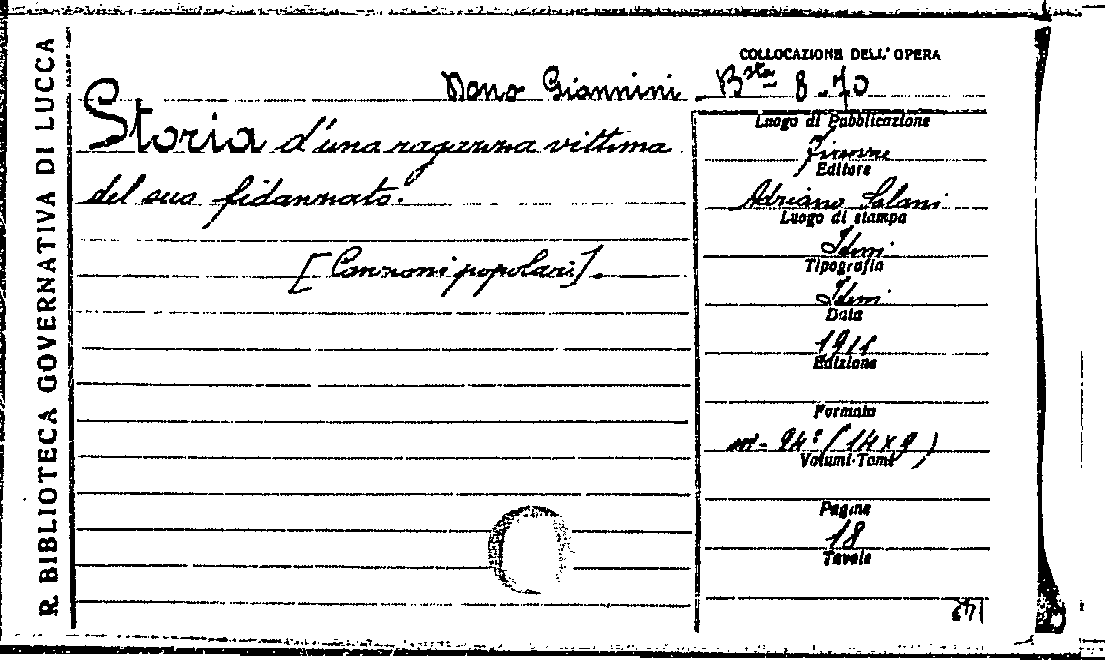 R. BIBLIOTECA GOVERNATIVA DI LUCCA
Dono Giannini
Storia d'una ragazza vittima
del suo fidanzato.
[Canzoni popolari].
COLLOCAZIONE DELL'OPERA
B.sta 8.70
Luogo di Pubblicazione
Firenze
Editore
Adriano Salani
Luogo di stampa
Idem
Tipografia
Idem
Data
1911
Edizione
Formato
in-24° (14x9)
Volumi-Tomi
Pagine
18
Tavole